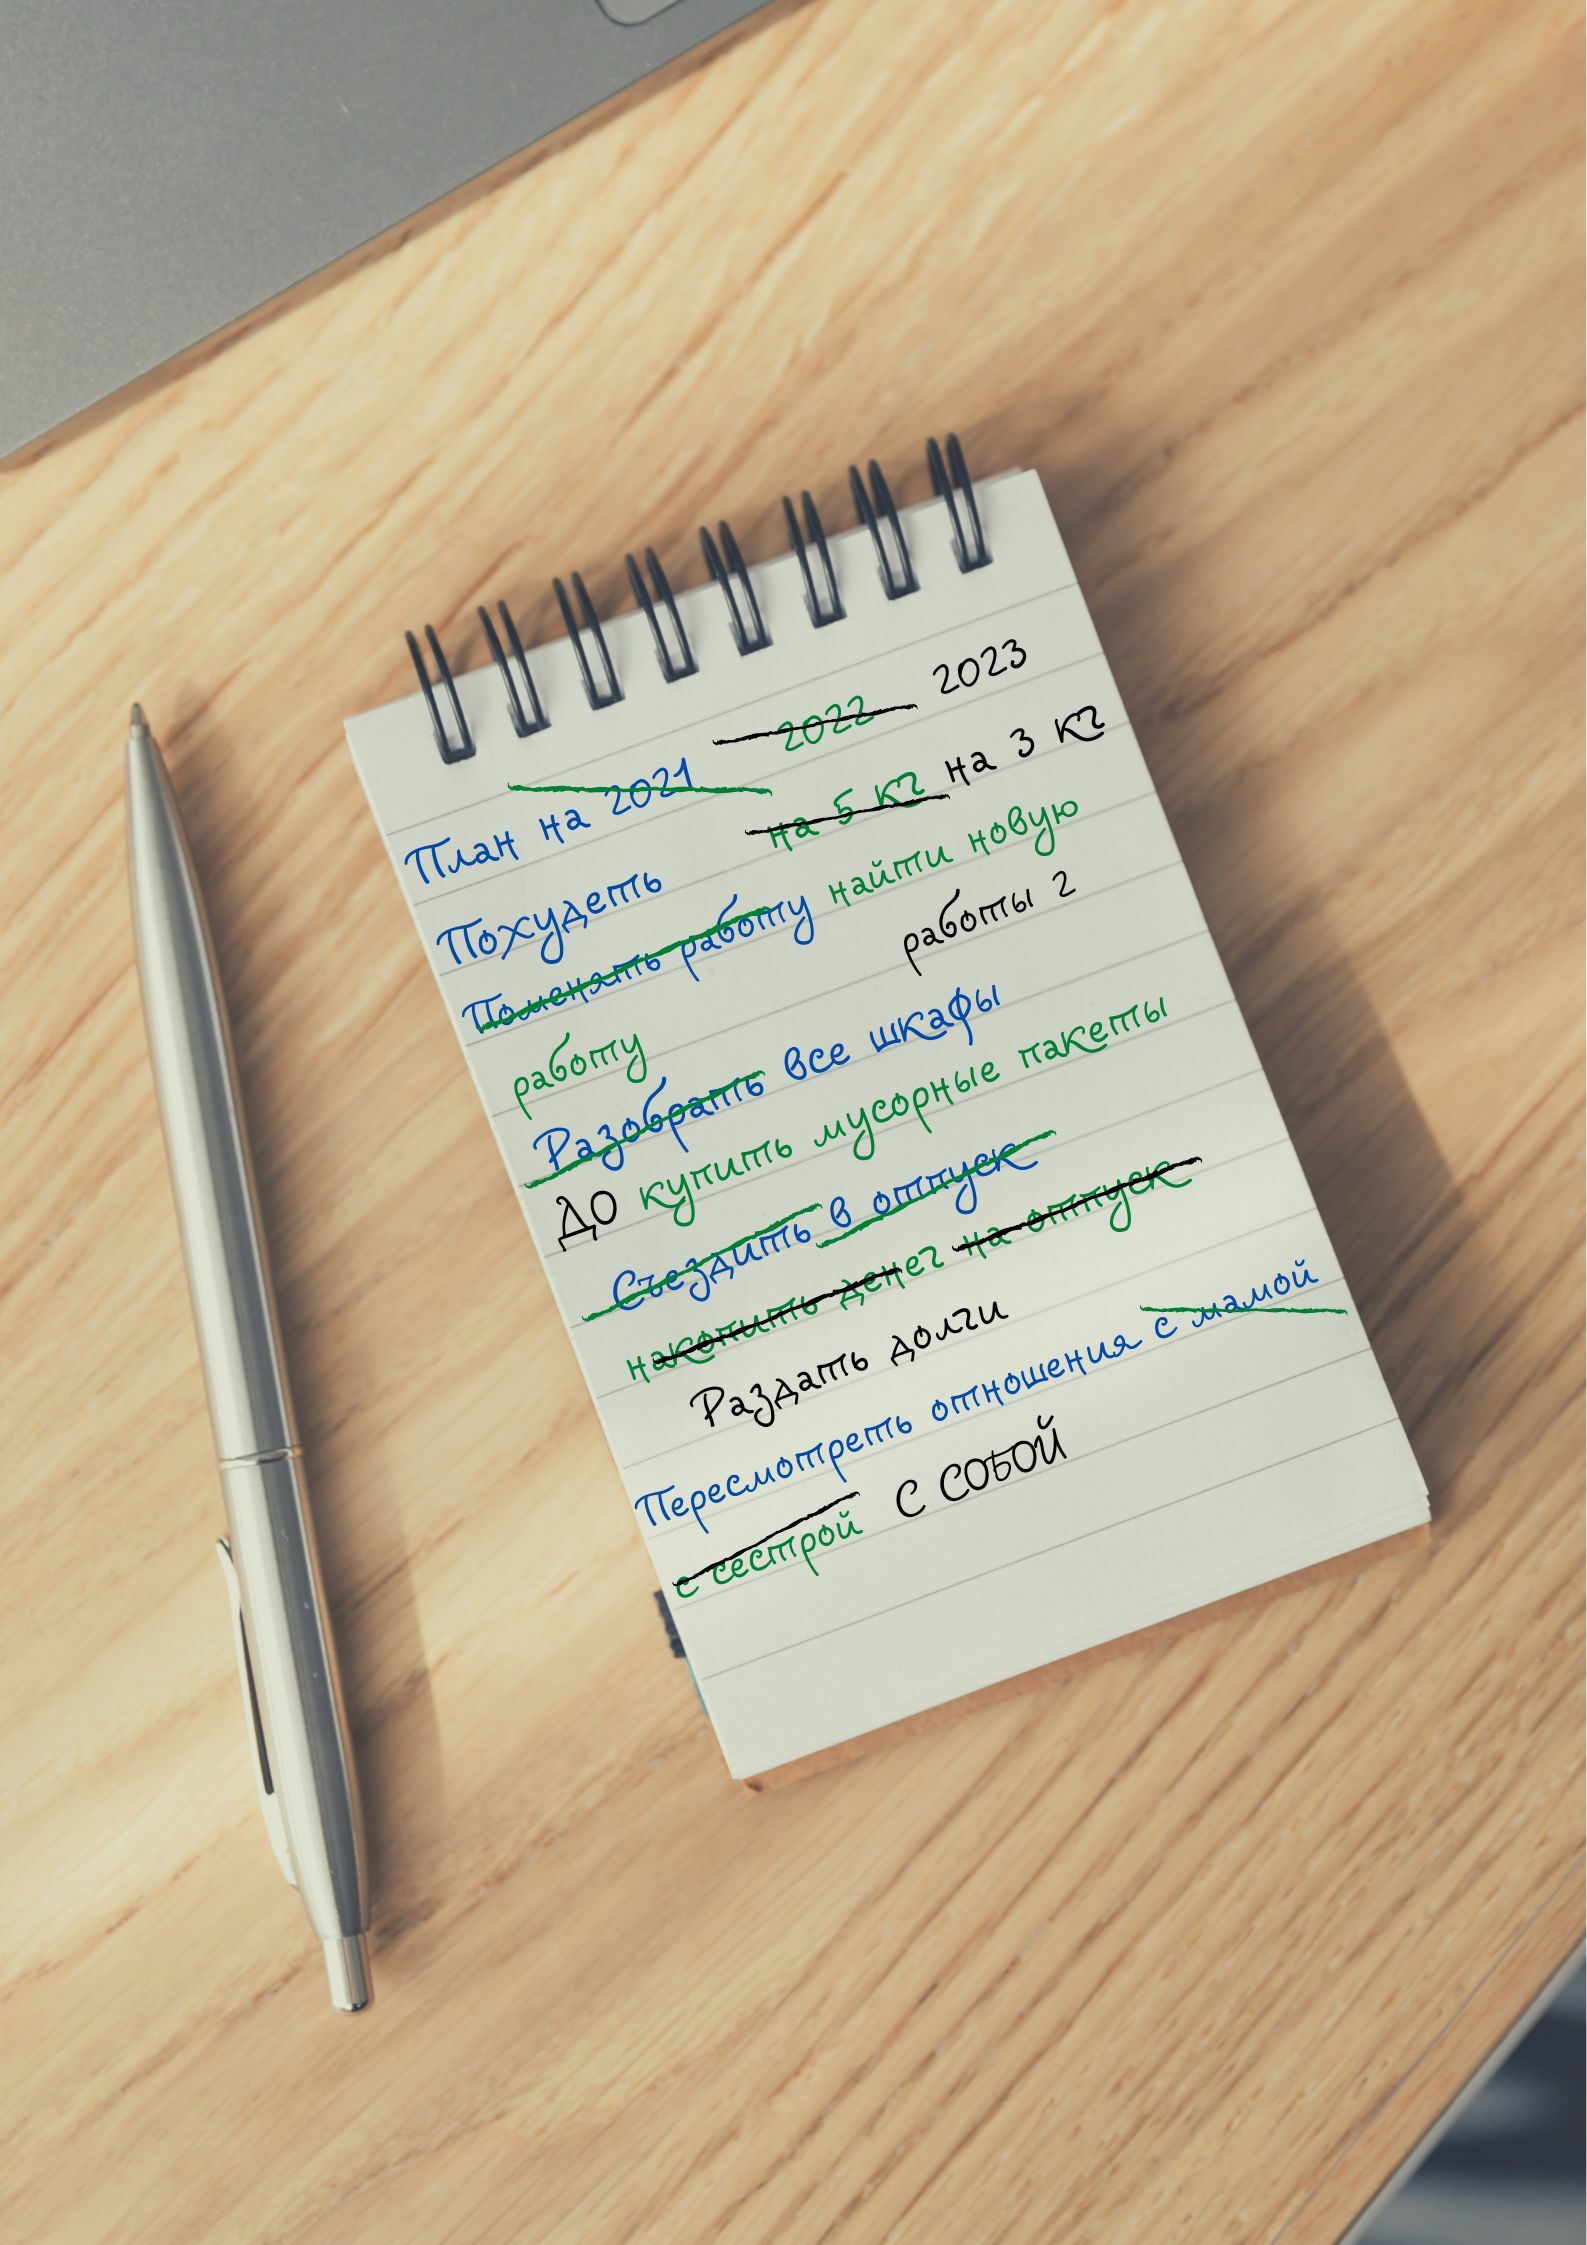 План на 2021 2022 2023
Похудеть на 5 кг на 3 кг
Поменять работу найти новую
работы 2
работу
Разобрать все шкафы
ДО купить мусорные пакеты
Съездить в отпуск
накопить денег на отпуск
Раздать долги
Пересмотреть отношения с мамой
с сестрой С СОБОЙ